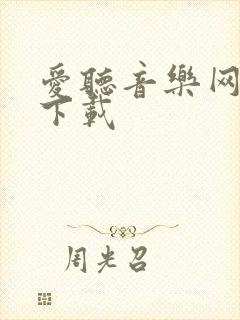 愛聽音樂网
下載
周光召